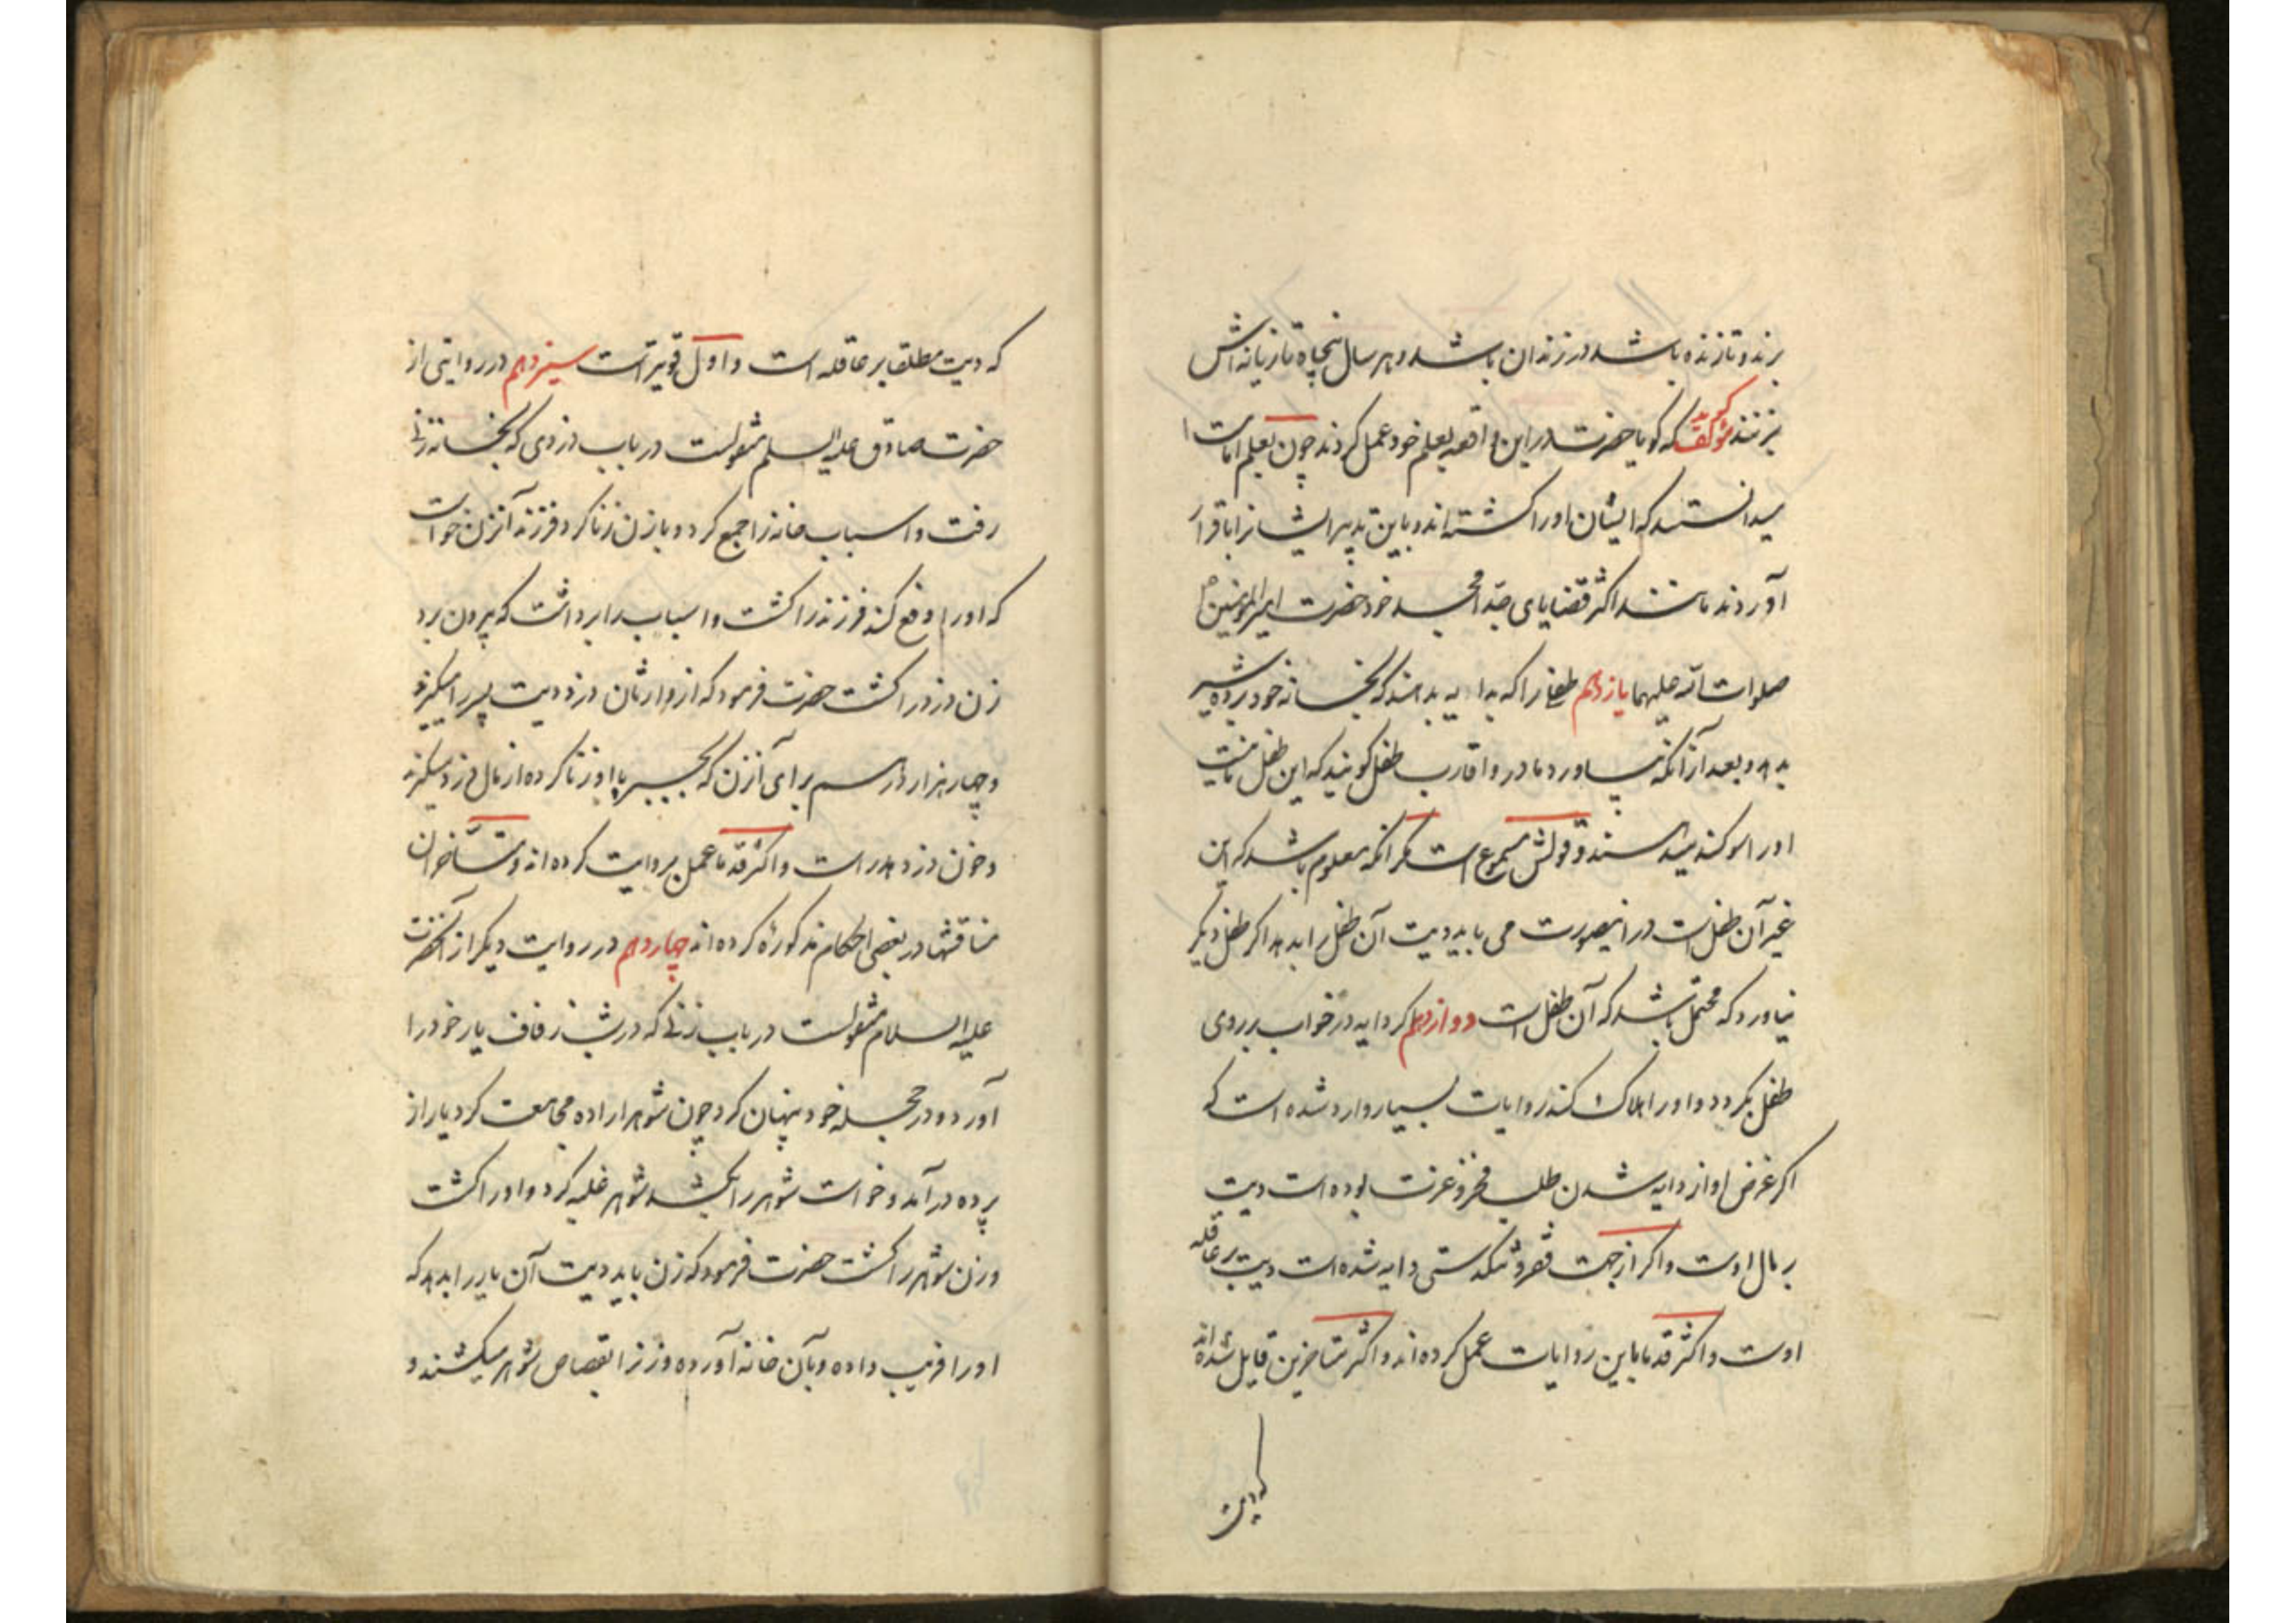 برند و تا زنده باشد در زندان باشد و هر سال پنجاه تازیانه اش
بزنند مؤلف گوید که گویا حضرت در این واقعه بعلم خود عمل کردند چون بعلم امامت
میدانستند که ایشان او را کشته اند و باین تدبیر ایشانرا باقرار
آوردند مانند اکثر قضایای جد امجد خود حضرت امیر المؤمنین
صلوات الله علیهما یازدهم طفلی را که بدایه بدهند که بخانه خود برده شیر
بدهد و بعد از آنکه بیاورد مادر و اقارب طفل گویند که این طفل ما نیست
او را سوگند میدهند و قولش مسموع است مگر آنکه معلوم باشد که این
غیر آن طفل است در اینصورت می باید دیت آن طفل را بدهد اگر طفل دیگر
نیاورد که محتمل باشد که آن طفل است دوازدهم اگر دایه در خواب بر روی
طفل بگردد و او را هلاک کند روایات بسیار وارد شده است که
اگر غرض او از دایه شدن طلب فخر و عزت بوده است دیت
بر مال اوست و اگر از جهت فقر و تنگدستی دایه شده است دیت بر عاقله
اوست و اکثر قدما باین روایات عمل کرده اند و اکثر متاخرین قایل شده اند
که دیت
که دیت مطلقا بر عاقله است و اول قویتر است سیزدهم در روایتی از
حضرت صادق علیه السلم منقولست در باب دزدی که بخانه زنی
رفت و اسباب خانه را جمع کرد و با زن زنا کرد فرزند آنزن خواست
که او را دفع کند فرزند را کشت و اسباب را برداشت که بیرون برد
زن دزد را کشت حضرت فرمود که از وارثان دزد دیت پسر را میگیرند
و چهار هزار درهم برای آنزن که بجبر با او زنا کرده از مال دزد میگیرند
و خون دزد هدر است و اکثر قدما عمل بروایت کرده اند و متاخران
مناقشها در بعضی احکام مذکوره کرده اند چهاردهم در روایت دیگر از آنحضرت
علیه السلام منقولست در باب زنی که در شب زفاف یار خود را
آورد و در حجله خود پنهان کرد چون شوهر اراده مجامعت کرد یار از
پرده درآمد و خواست شوهر را بکشد شوهر غلبه کرد و او را کشت
و زن شوهر را کشت حضرت فرمود که زن باید دیت آن یار را بدهد که
او را فریب داده و بآن خانه آورده و زنرا بقصاص شوهر میکشند و